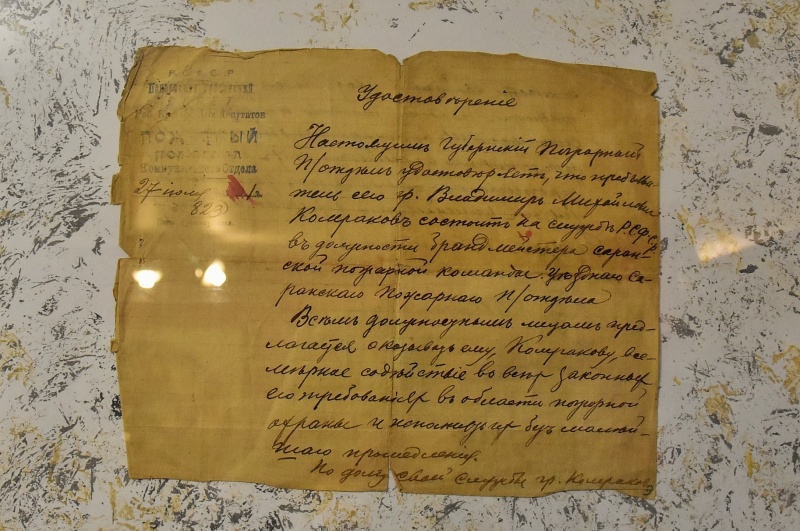 Р С Ф С Р
Депутатов
Коммунального Отдела
27 июля
823
Удостовѣреніе
Настоящимъ Губернскій Пожарный
П/отдѣлъ удостовѣряетъ, что предъяви-
тель сего гр. Владимиръ Михайлович
Колграковъ состоитъ на службѣ Р.С.Ф.С.Р.
въ должности брандмейстера саран-
ской пожарной команды Уѣзднаго Са-
ранскаго Пожарнаго П/отдѣла
Всѣмъ должностнымъ лицамъ пред-
лагается оказывать ему, Колгракову, все-
мѣрное содѣйствіе во всѣхъ законныхъ
его требованіяхъ въ области пожарной
охраны и исполнять их безъ малѣй-
шаго промедленія.
По долгу своей службы гр. Колграковъ